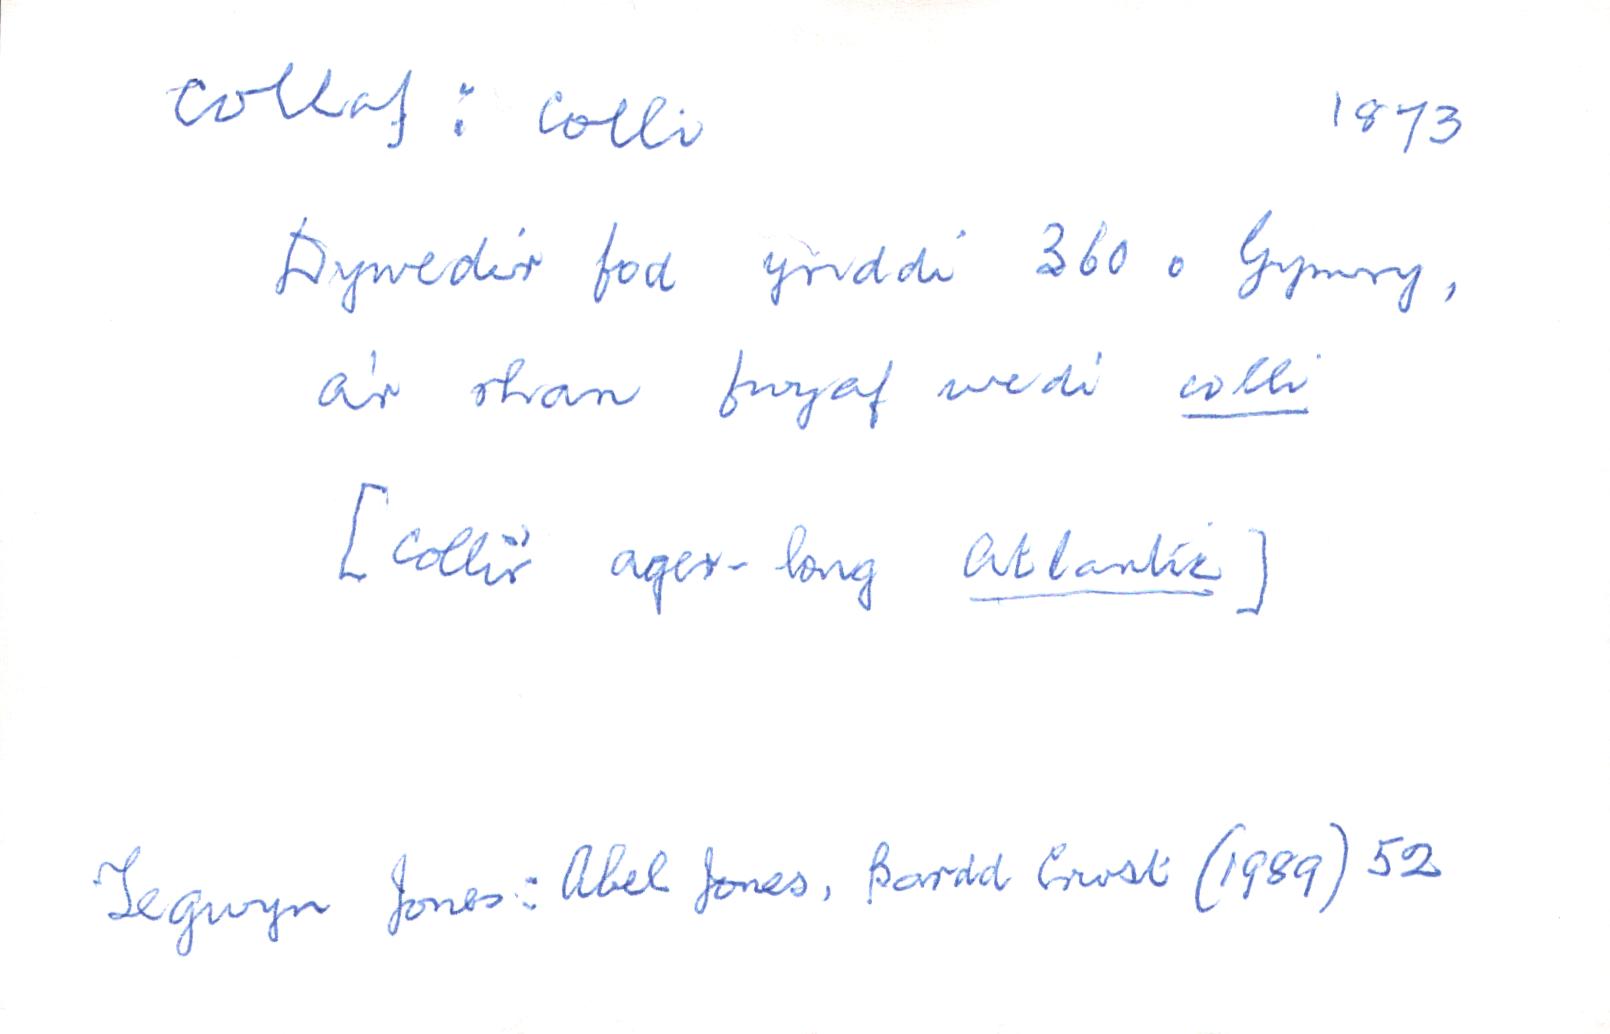 collaf: colli 1873
Dywedir fod ynddi 360 o Gymry,
a'r rhan fwyaf wedi colli
[Collir ager-long Atlantic]
Tegwyn Jones: Abel Jones, Bardd Crwst (1989) 52